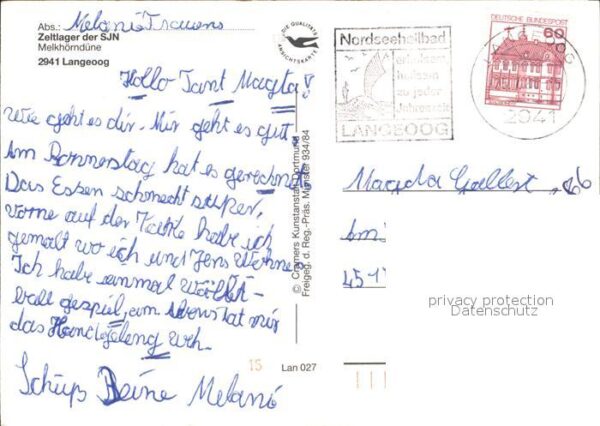 Abs.: Melanie
Zeltlager der SJN
Melkhörndüne
2941 Langeoog
DIE QUALITÄTS
ANSICHTSKARTE
Nordseeheilbad
erholsam
heilsam
zu jeder
Jahreszeit
LANGEOOG
LANGEOOG
2941
DEUTSCHE BUNDESPOST
60
Hallo Tant Magta!
Wie geht es dir. Mir geht es gut.
Am Donnerstag hat es gerechnet
Das Essen schmeckt super,
vorne auf der Karte habe ich
gemalt wo ich und Jens wohnen
Ich habe einmal Wolleü-
ball gespiel, am Abens tat mir
das Handgeleng weh.
Schüps Deine Melani
© Cramers Kunstanstalt Dortmund
Freigeg. d. Reg.-Präs. Münster 934/84
15
Lan 027
Magda Gallert
Am
451
privacy protection
Datenschutz